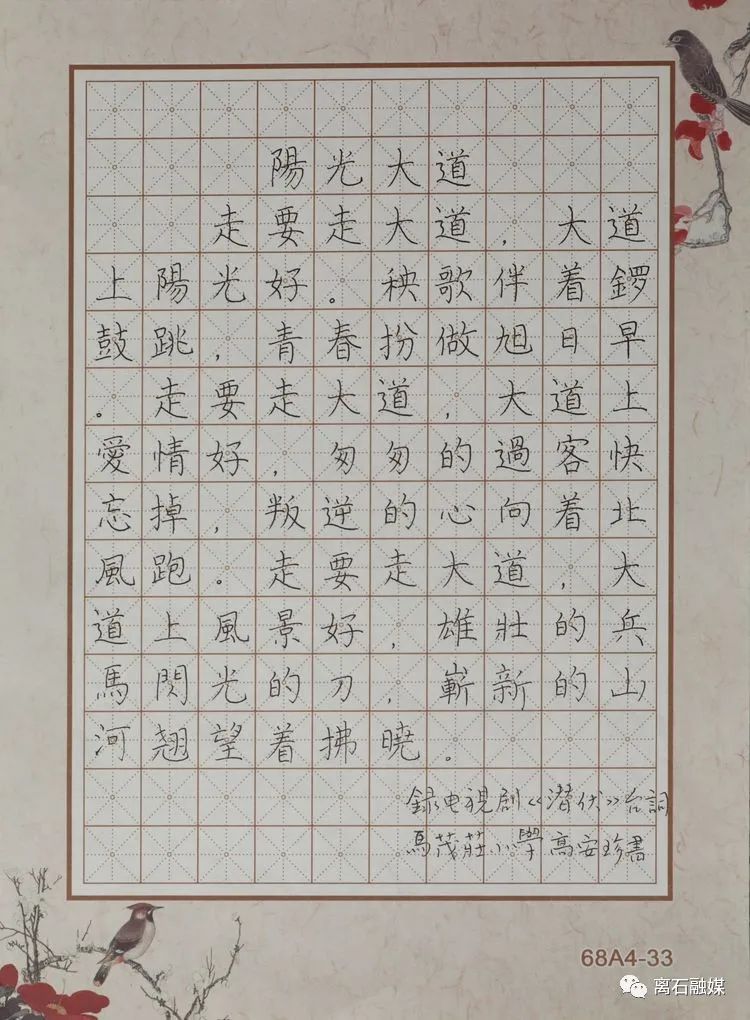 陽光大道
走要走大道，大道
上陽光好。秧歌伴着鑼
鼓跳，青春扮做旭日早
。走要走大道，大道上
愛情好，匆匆的過客快
忘掉，叛逆的心向着北
風跑。走要走大道，大
道上風景好，雄壯的兵
馬閃光的刀，嶄新的山
河翹望着拂曉。
録电視剧《潜伏》台詞
馬茂莊小學高安珍書
68A4-33
离石融媒